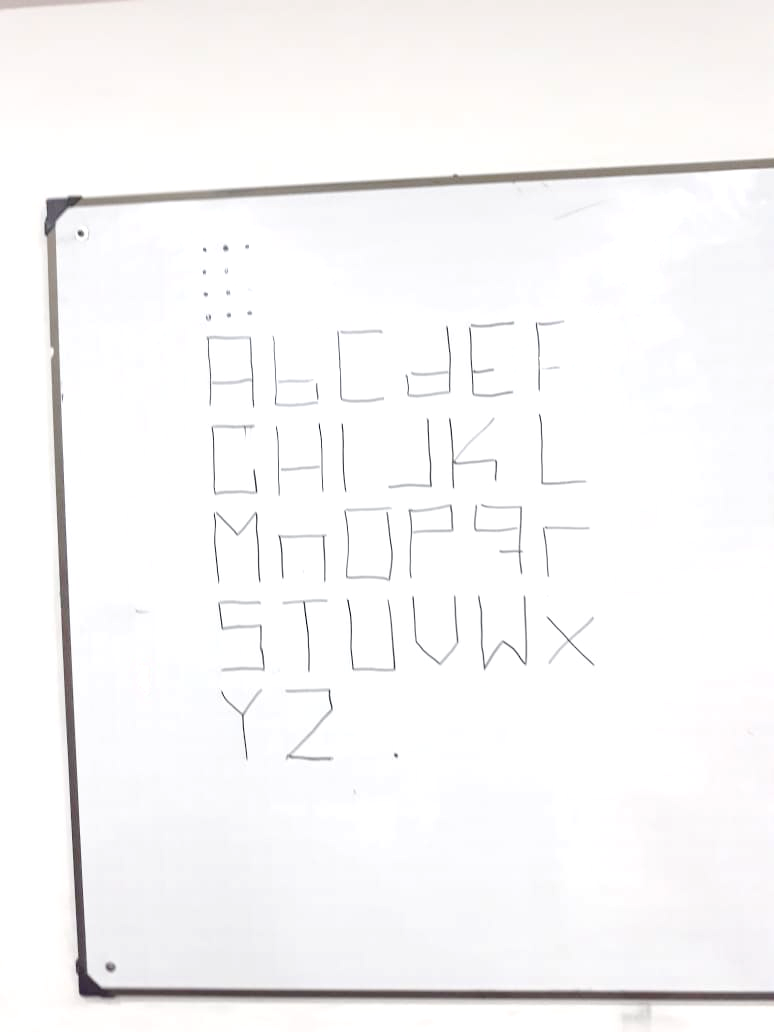 A b C d E F
G H I J K L
M n O P q r
S T U V W X
Y Z .